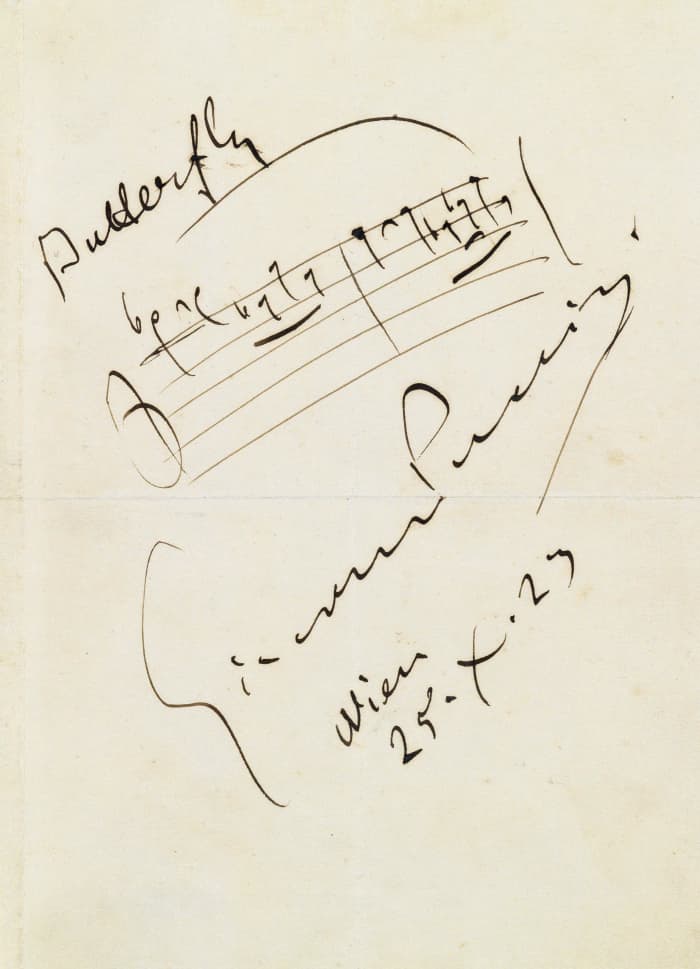 Butterfly
Giacomo Puccini
Wien
25. X. 23